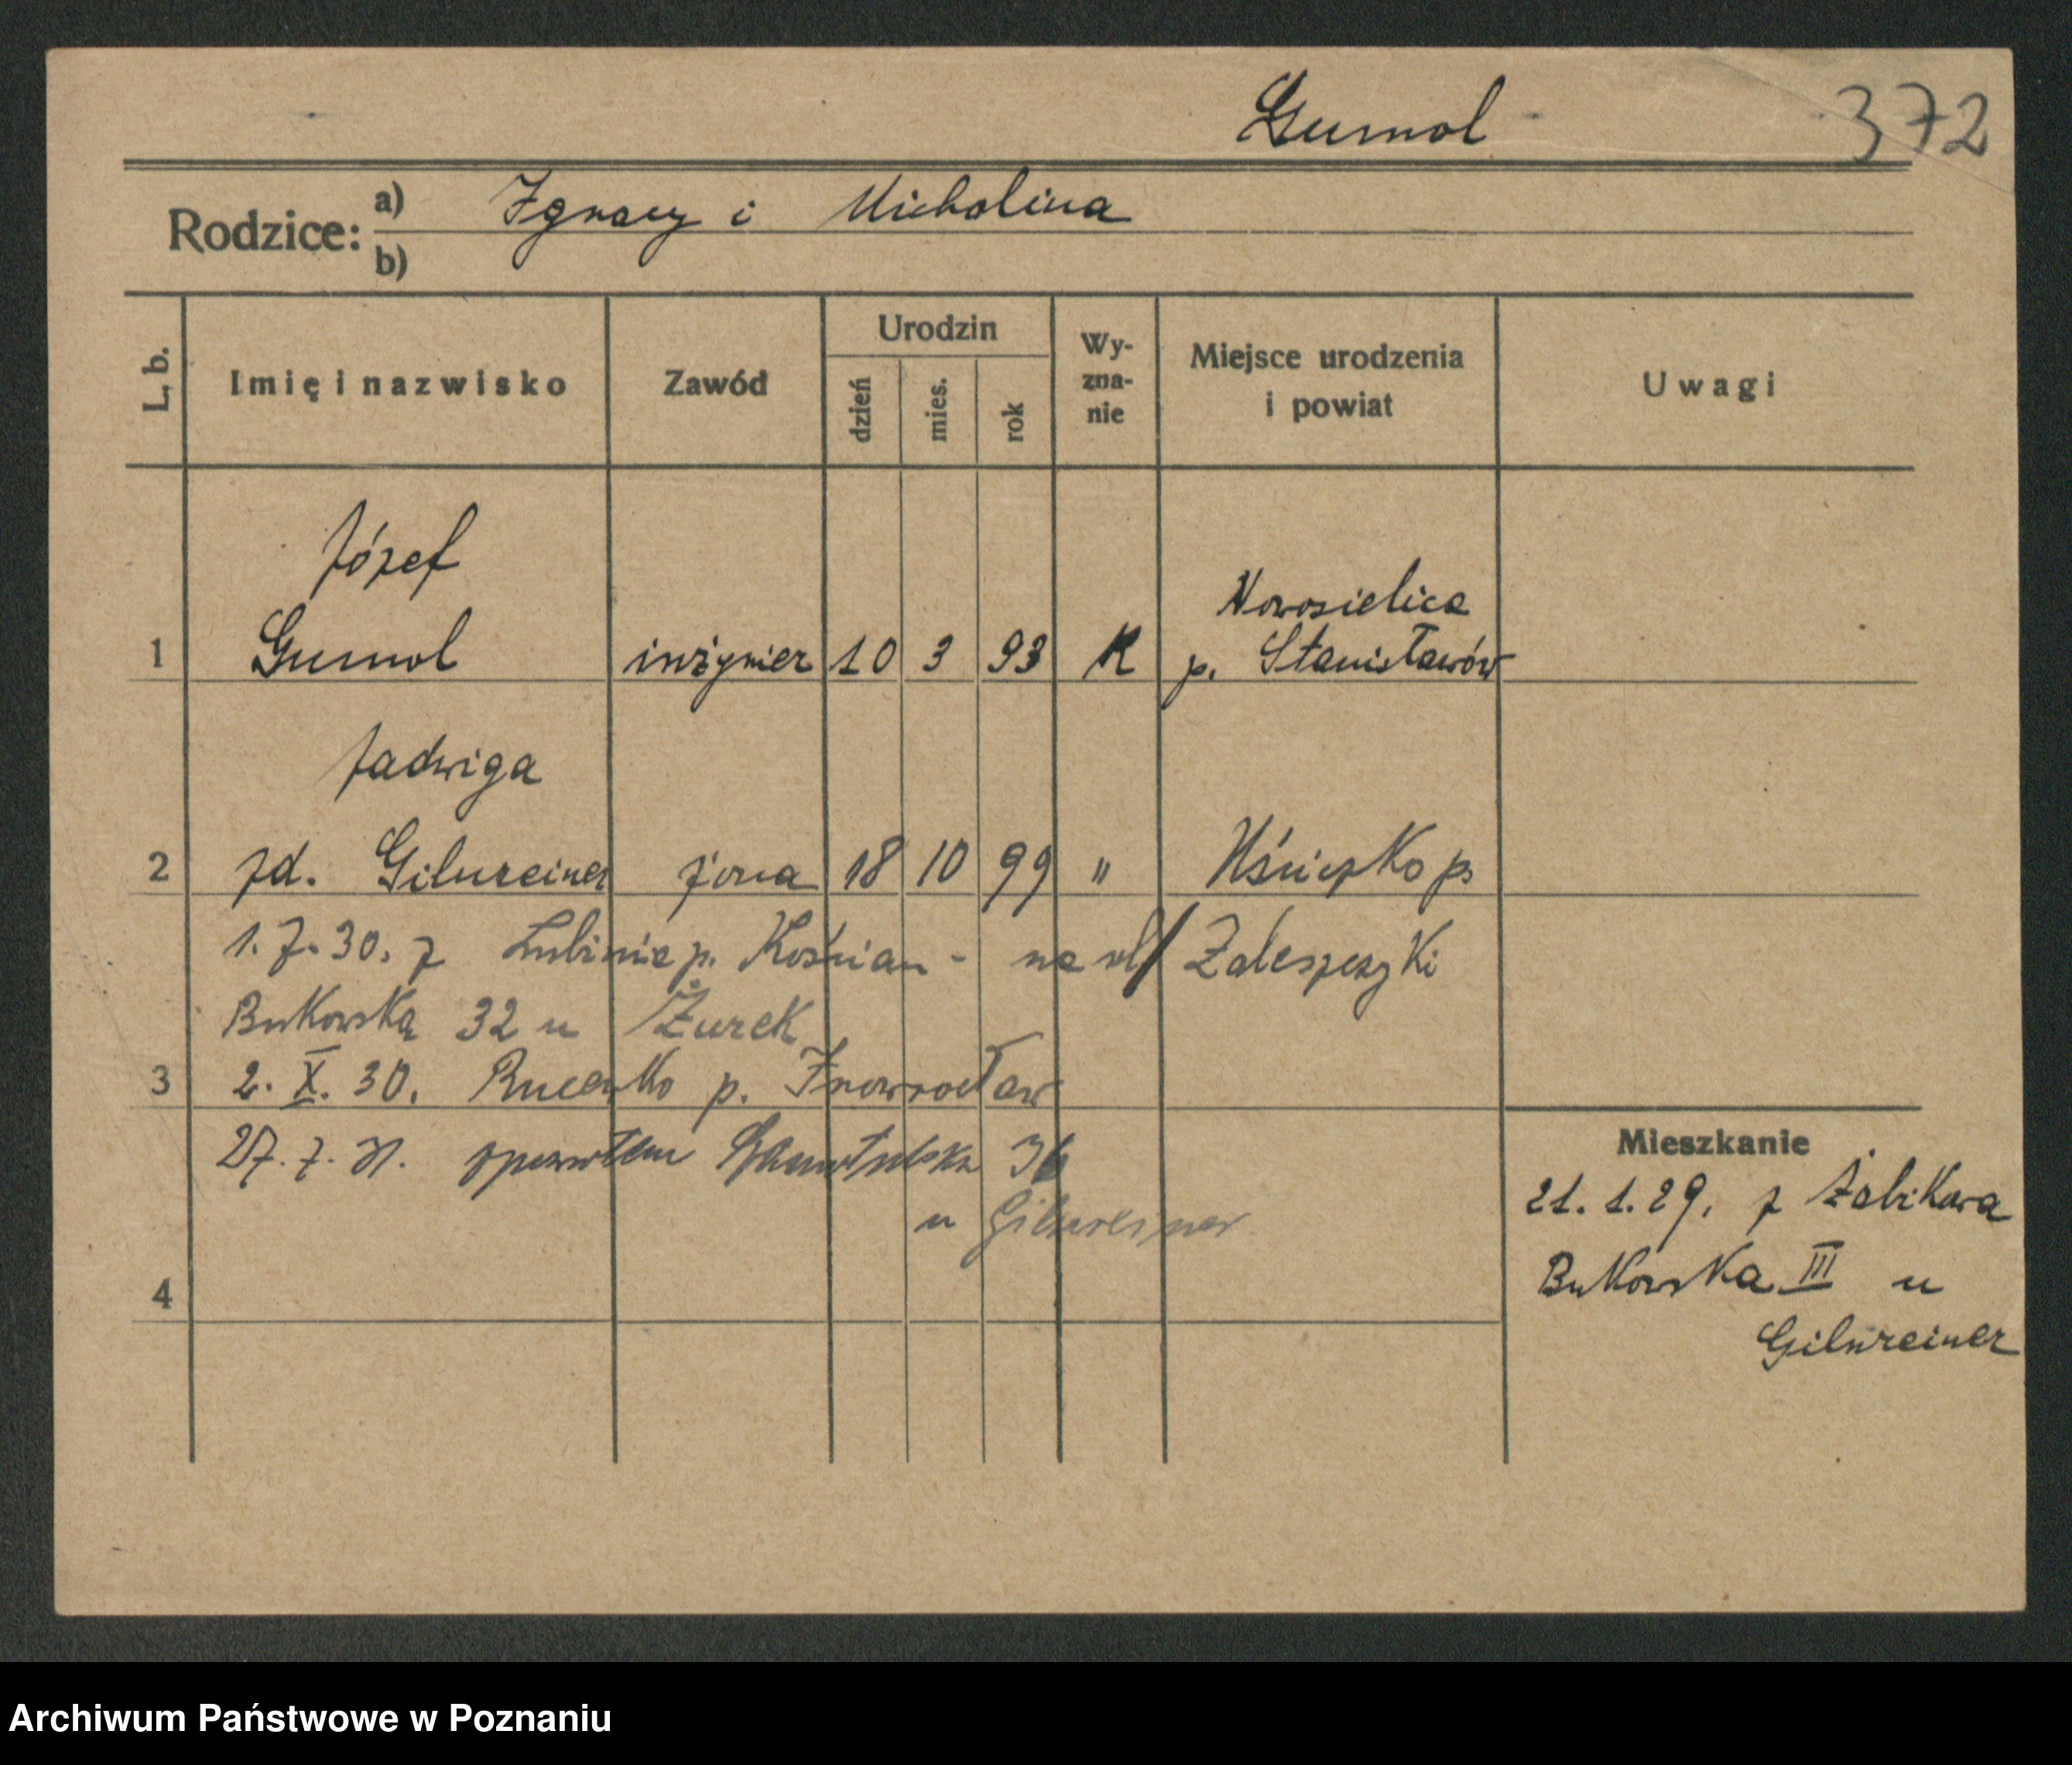 Gumol 372
Rodzice: a) Ignacy i Michalina
b)
L. b. Imię i nazwisko Zawód Urodzin dzień mies. rok Wy-zna-nie Miejsce urodzenia i powiat Uwagi
Józef
Nowosielica
1 Gumol inżynier 10 3 93 K p. Stanisławów
Jadwiga
2 zd. Gilnreiner żona 18 10 99 " p.
1.7.30. z Lubinia p. Kościan - na ul/ Zaleszczyki
Bukowska 32 u Żurek
3 2. X. 30. p. Inowrocław
27. 7. 31. spowrotem Szamotulska
u Gilnreiner
4
Mieszkanie
21. 1. 29. z Żabikowa
Bukowska III u
Gilnreiner
Archiwum Państwowe w Poznaniu